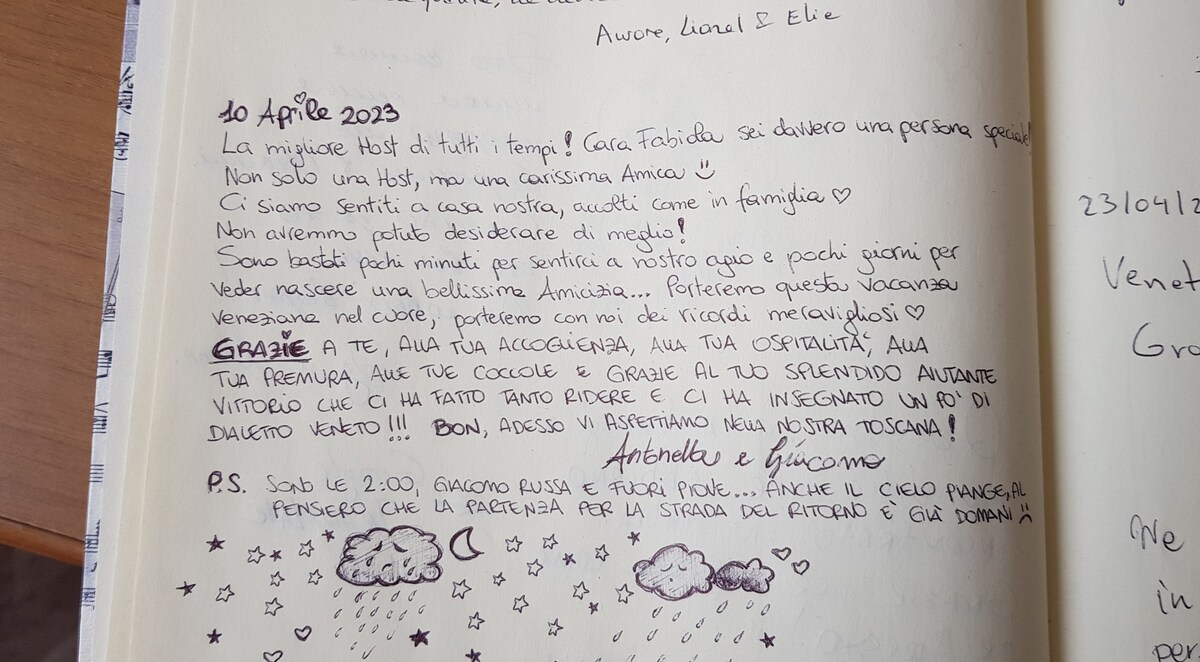 Awore, Lionel & Elie
10 Aprile 2023
La migliore Host di tutti i tempi! Cara Fabiola sei davvero una persona speciale!
Non solo una Host, ma una carissima Amica
Ci siamo sentiti a casa nostra, accolti come in famiglia ♡
Non avremmo potuto desiderare di meglio!
Sono bastati pochi minuti per sentirci a nostro agio e pochi giorni per
veder nascere una bellissima Amicizia... Porteremo questa vacanza
veneziana nel cuore, porteremo con noi dei ricordi meravigliosi ♡
GRAZIE A TE, ALLA TUA ACCOGLIENZA, ALLA TUA OSPITALITÀ, ALLA
TUA PREMURA, ALLE TUE COCCOLE E GRAZIE AL TUO SPLENDIDO AIUTANTE
VITTORIO CHE CI HA FATTO TANTO RIDERE E CI HA INSEGNATO UN PO' DI
DIALETTO VENETO!!! BON, ADESSO VI ASPETTIAMO NELLA NOSTRA TOSCANA!
Antonella e Giacomo
P.S. SONO LE 2:00, GIACOMO RUSSA E FUORI PIOVE... ANCHE IL CIELO PIANGE, AL
PENSIERO CHE LA PARTENZA PER LA STRADA DEL RITORNO È GIÀ DOMANI
23/04/2
Venet
Gra
We
in
per